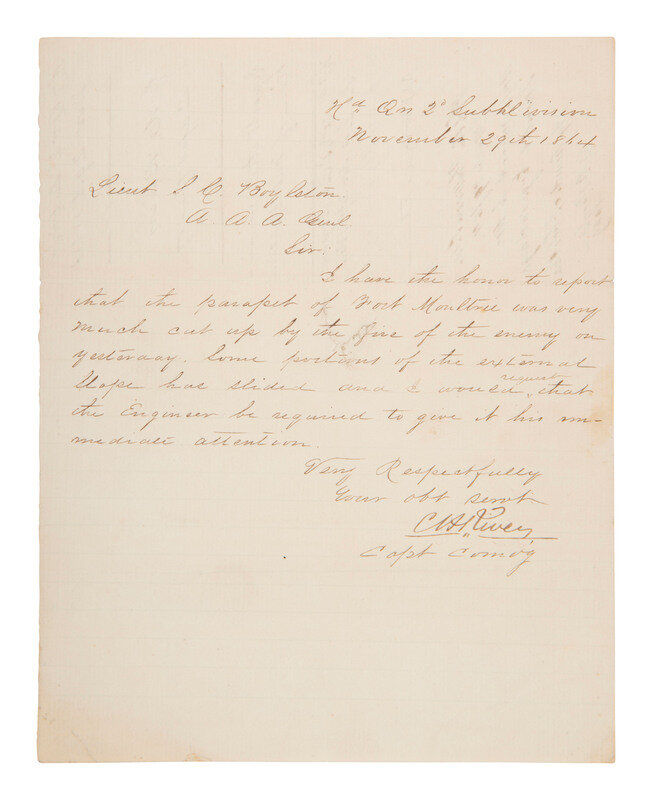 Hd Qrs 2d Subdivision
November 29th 1864
Lieut S C. Boylston.
A. A. A. Genl.
Sir:
I have the honor to report
that the parapet of Fort Moultrie was very
much cut up by the fire of the enemy on
yesterday. Some portions of the external
slope has slided and I would request that
the Engineer be required to give it his im-
mediate attention.
Very Respectfully
Your obt servt
C H Rivers
Capt Comd'g